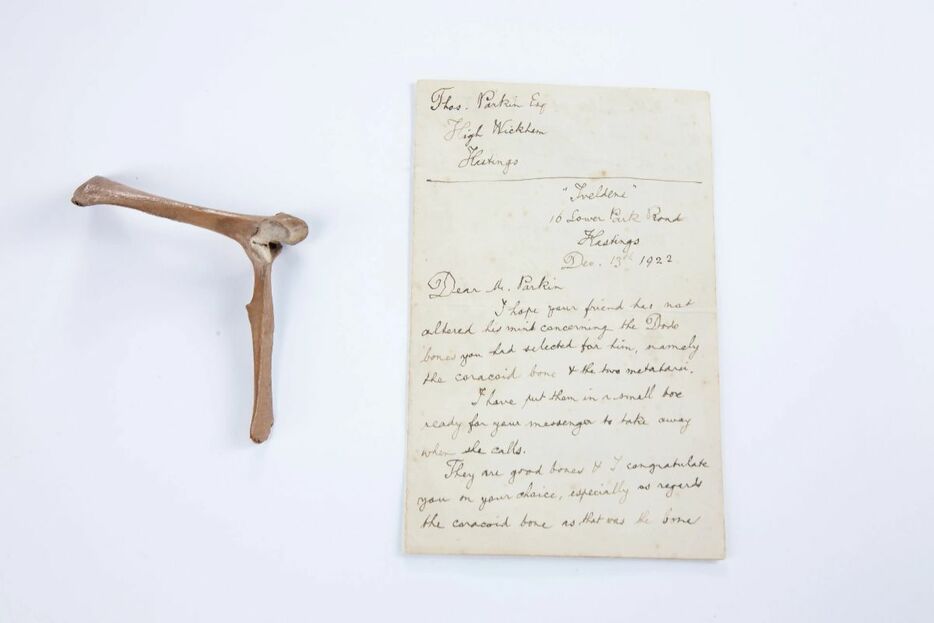 Thos. Parkin Esq
High Wickham
Hastings
16 Lower Park Road
Hastings
Dec. 13th 1922
Dear Mr. Parkin
I hope your friend has not
altered his mind concerning the Dodo
bones you had selected for him, namely
the coracoid bone & the two metatarsi.
I have put them in a small box
ready for your messenger to take away
when she calls.
They are good bones & I congratulate
you on your choice, especially as regards
the coracoid bone as that was the bone